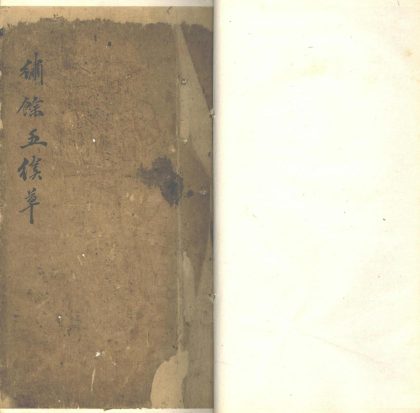 繡餘五續草